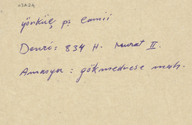 yörküç pş camii
Devri: 834 H. Murat II.
Amasya: gökmedrese mah.